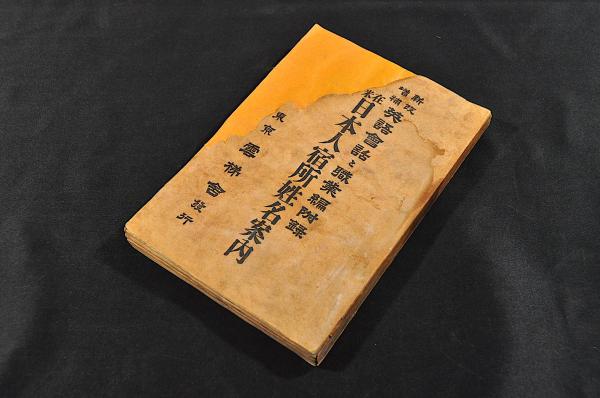 新改
増補
英語會話と職業編附録
在米
日本人宿所姓名案内
東京
雲梯會發行